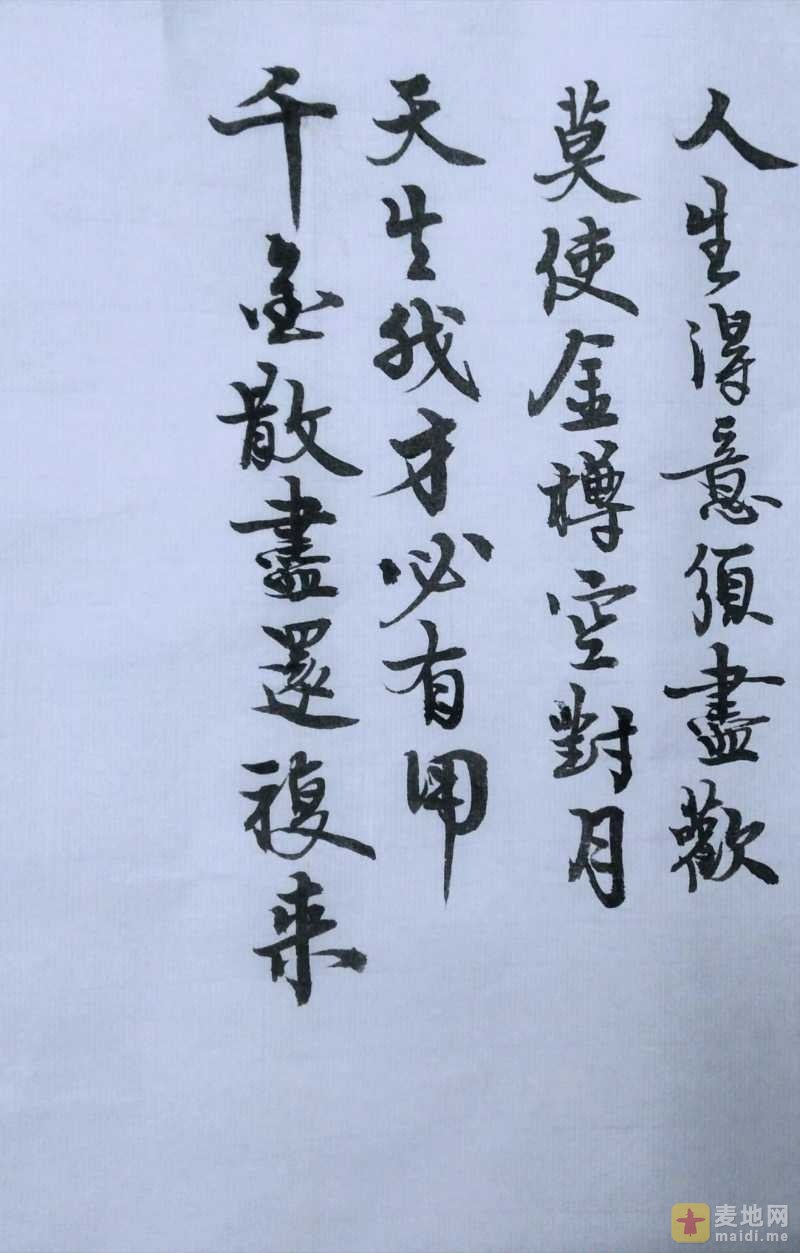 人生得意須盡歡
莫使金樽空對月
天生我才必有用
千金散盡還複来
麦地网
maidi.me